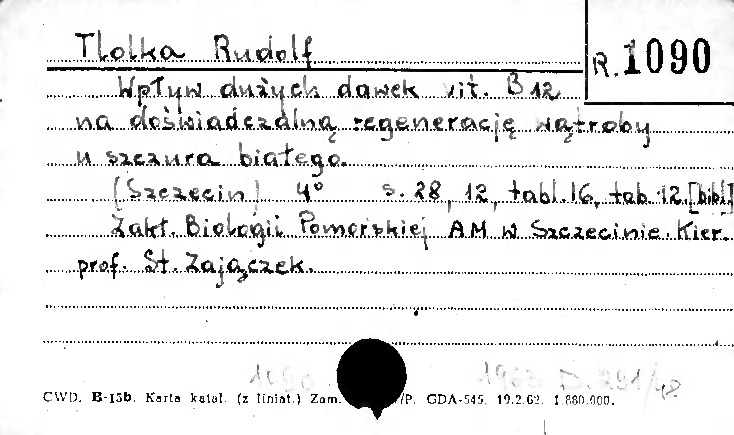 Tlolka Rudolf
R. 1090
Wpływ dużych dawek vit. B 12
na doświadczalną regenerację wątroby
u szczura białego.
[Szczecin] 4° s. 28, 12, tabl. 16, tab. 12 [bibl.]
Zakł. Biologii Pomorskiej AM w Szczecinie. Kier.
prof. St. Zajączek.
1090 1963 D. 291/48
CWD. B-15b. Karta katal. (z liniat.) Zam. /P. GDA-545. 19.2.62. 1.880.000.